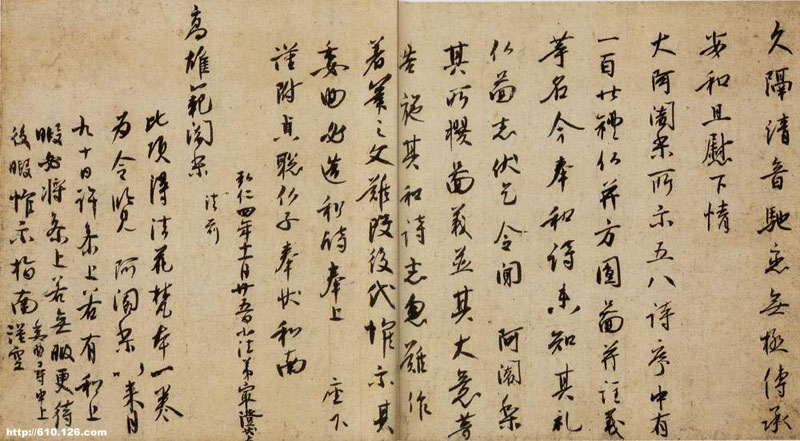 久隔清音馳恋無極傳承
安和且慰下情
大阿闍梨所示五八詩序中有
一百廿禮仏并方圓圖并註義
等名今奉和詩未知其礼
仏圖者伏乞令聞 阿闍梨
其所撰圖義並其大意等
告施其和詩者忽難作
著筆之文難改後代惟示其
委曲必造和詩奉上 座下
謹附貞聡仏子奉状和南
弘仁四年十一月廿五日小法弟最澄
高雄範闍梨
法前
此頃得法花梵本一巻
為令覧 阿闍梨以来月
九十日許参上若有和上
暇必将参上若無暇更待
後暇惟示指南 委曲尋申上
謹空
http://610.126.com